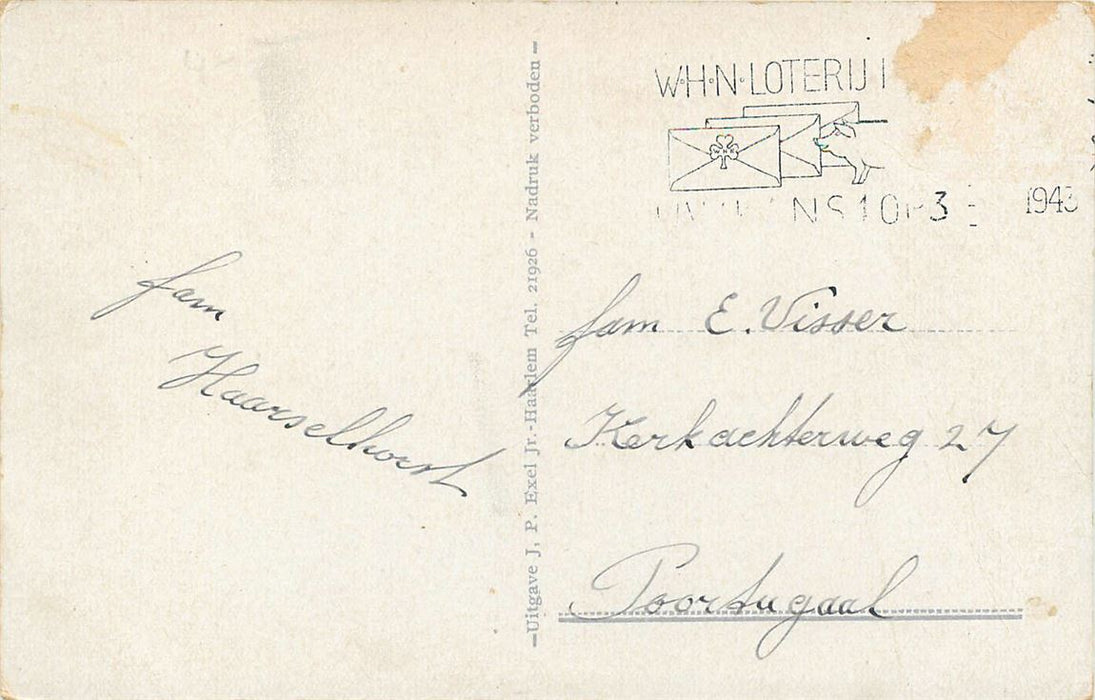 fam
Haarselhorst
—Uitgave J. P. Exel Jr.-Haarlem Tel. 21926 - Nadruk verboden —
W·H·N·LOTERIJ
WHN
1943
fam E. Visser
Kerkachterweg 27
Poortugaal